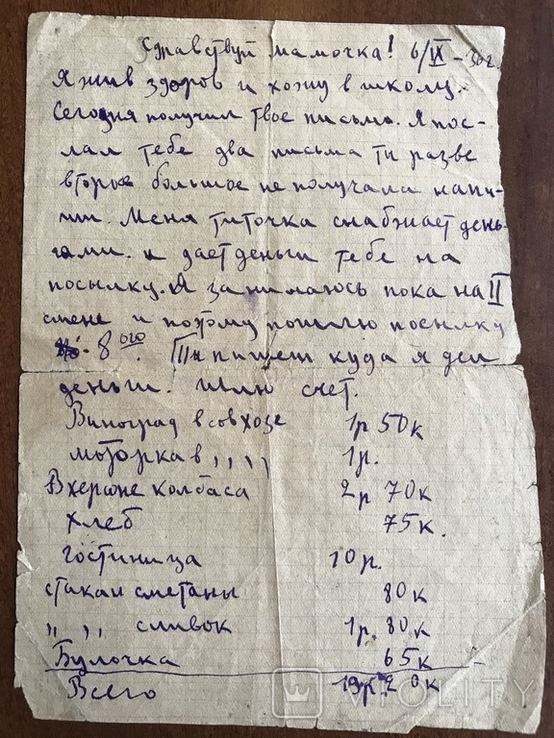 Здравствуй мамочка! 6/IX-36г
Я жив здоров и хожу в школу.
Сегодня получил твое письмо. Я пос-
лал тебе два письма ти разве
второе большое не получала напи-
ши. Меня титочка снабжает день-
гами. и дает деньги тебе на
посылку. Я занимаюсь пока на II
смене и потому пошлю посылку
8ого Ти пишеш куда я дел
деньги. Шлю счет.
Виноград в совхозе 1р 50к
моторка в ,, ,, 1р.
В херсоне колбаса 2р 70к
хлеб 75к.
гостиница 10р.
стакан сметаны 80к
,, ,, сливок 1р. 80к
Булочка 65к
Всего 19р. 20к
VIOLITY